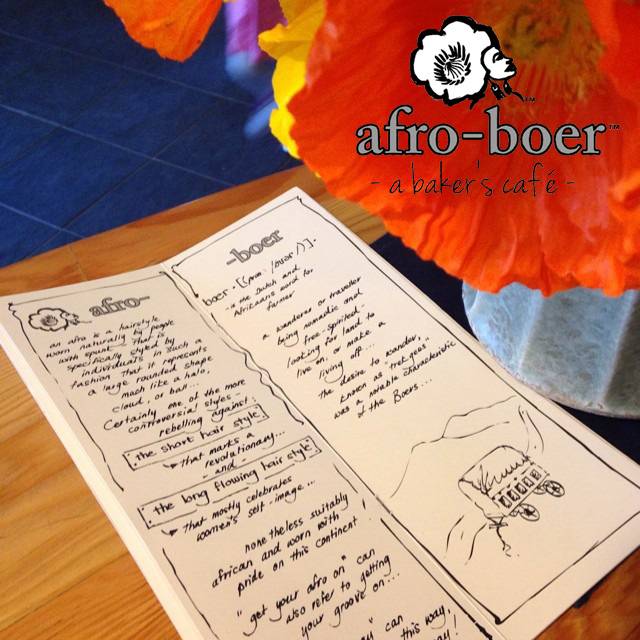 afro-boer™
- a baker's café -
afro-
an afro is a hairstyle
worn naturally by people
with spunk - that is
specifically styled by
individuals in such a
fashion that it represents
a large rounded shape
much like a halo,
cloud, or ball...
Certainly one of the more
controversial styles -
rebelling against:
the short hair style
that marks a
revolutionary...
- and -
the long flowing hair style
that mostly celebrates
women's self-image...
nonetheless suitably
african and worn with
pride on this continent!
"get your afro on" can
also refer to getting
your groove on...
can
this way,
-boer
boer -
- a me Dutch and
Afrikaans word for
farmer
a wanderer or traveller
being nomadic and
free-spirited -
looking for land to
live on, or make a
living off...
the desire to wander,
known as "trek gees"
was a notable characteristic
of the Boers...